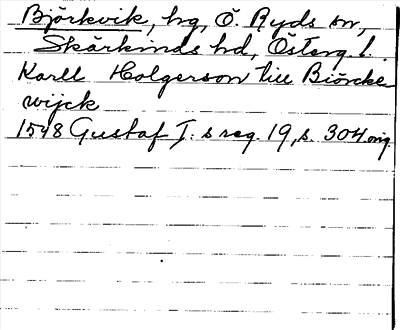 Björkvik, hg, Ö. Ryds sn,
Skärkinds hd, Österg. l.
Karll Holgerson till Biörcke
wijck
1548 Gustaf I:s reg. 19, s. 304 orig.